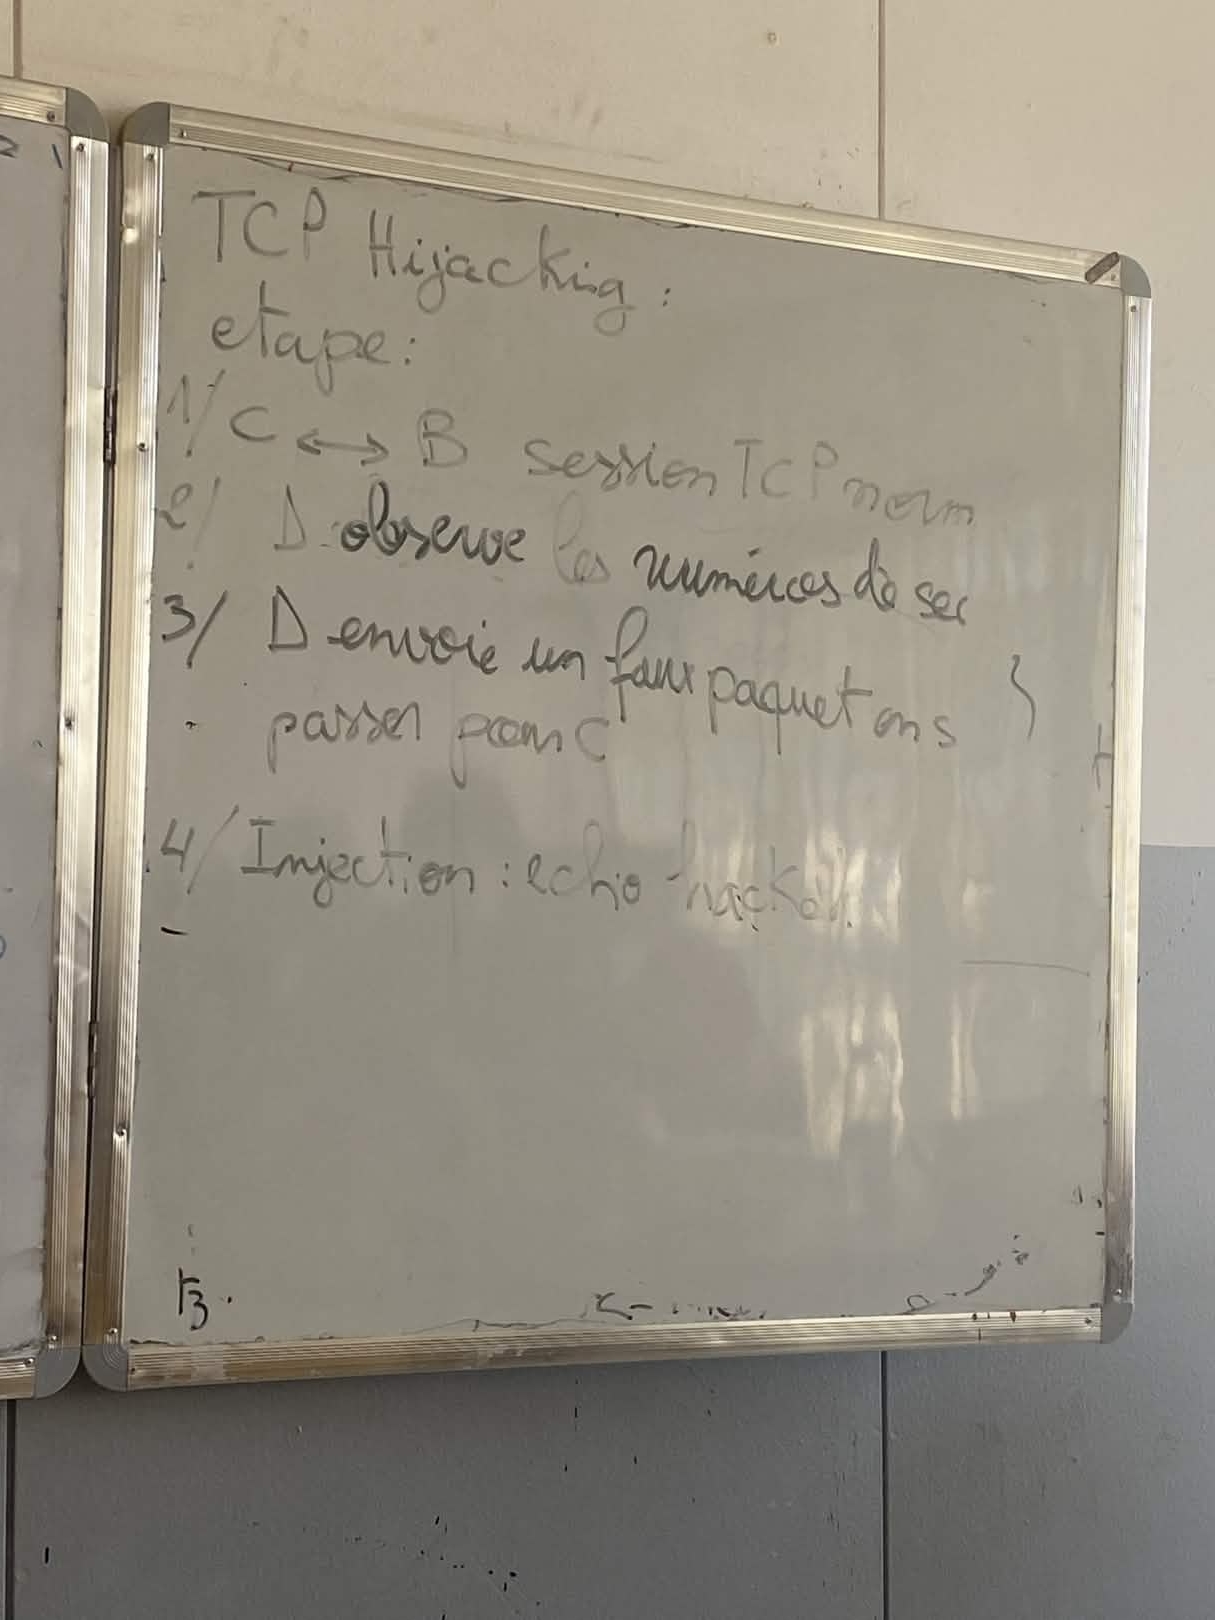 TCP Hijacking :
etape :
1/ C ↔ B session TCP norm
2/ D observe les numéros de sec
3/ D envoie un faux paquet en s
passer pour C
4/ Injection : echo hacked